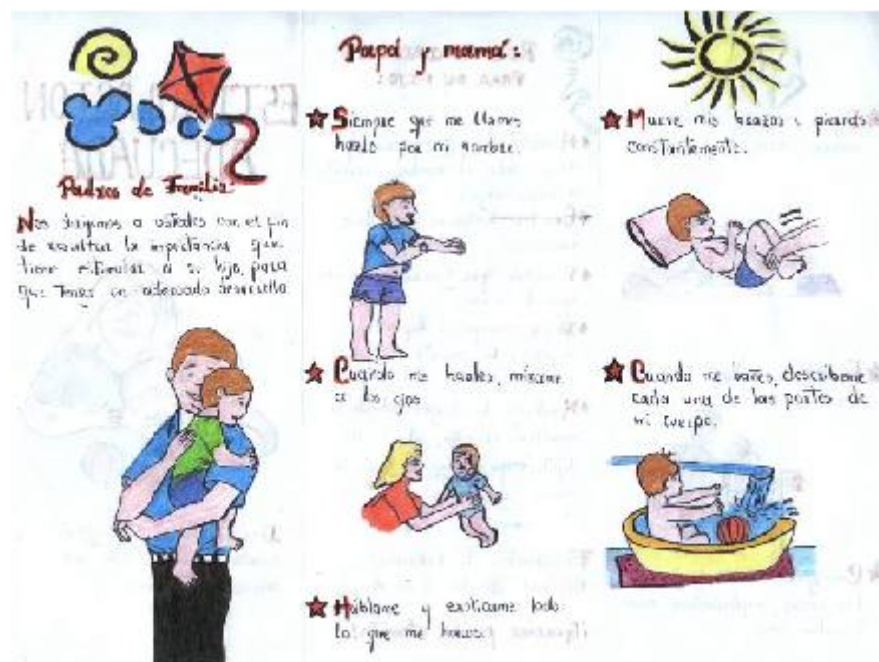 Padres de Familia:
Nos dirigimos a ustedes con el fin
de resaltar la importancia que
tiene estimular a su hijo, para
que tenga un adecuado desarrollo
Papá y mamá:
Siempre que me llames
hazlo por mi nombre.
Cuando me hables, mírame
a los ojos
Háblame y explícame todo
lo que me haces.
Mueve mis brazos y piernas
constantemente.
Cuando me bañes, descríbeme
cada una de las partes de
mi cuerpo.